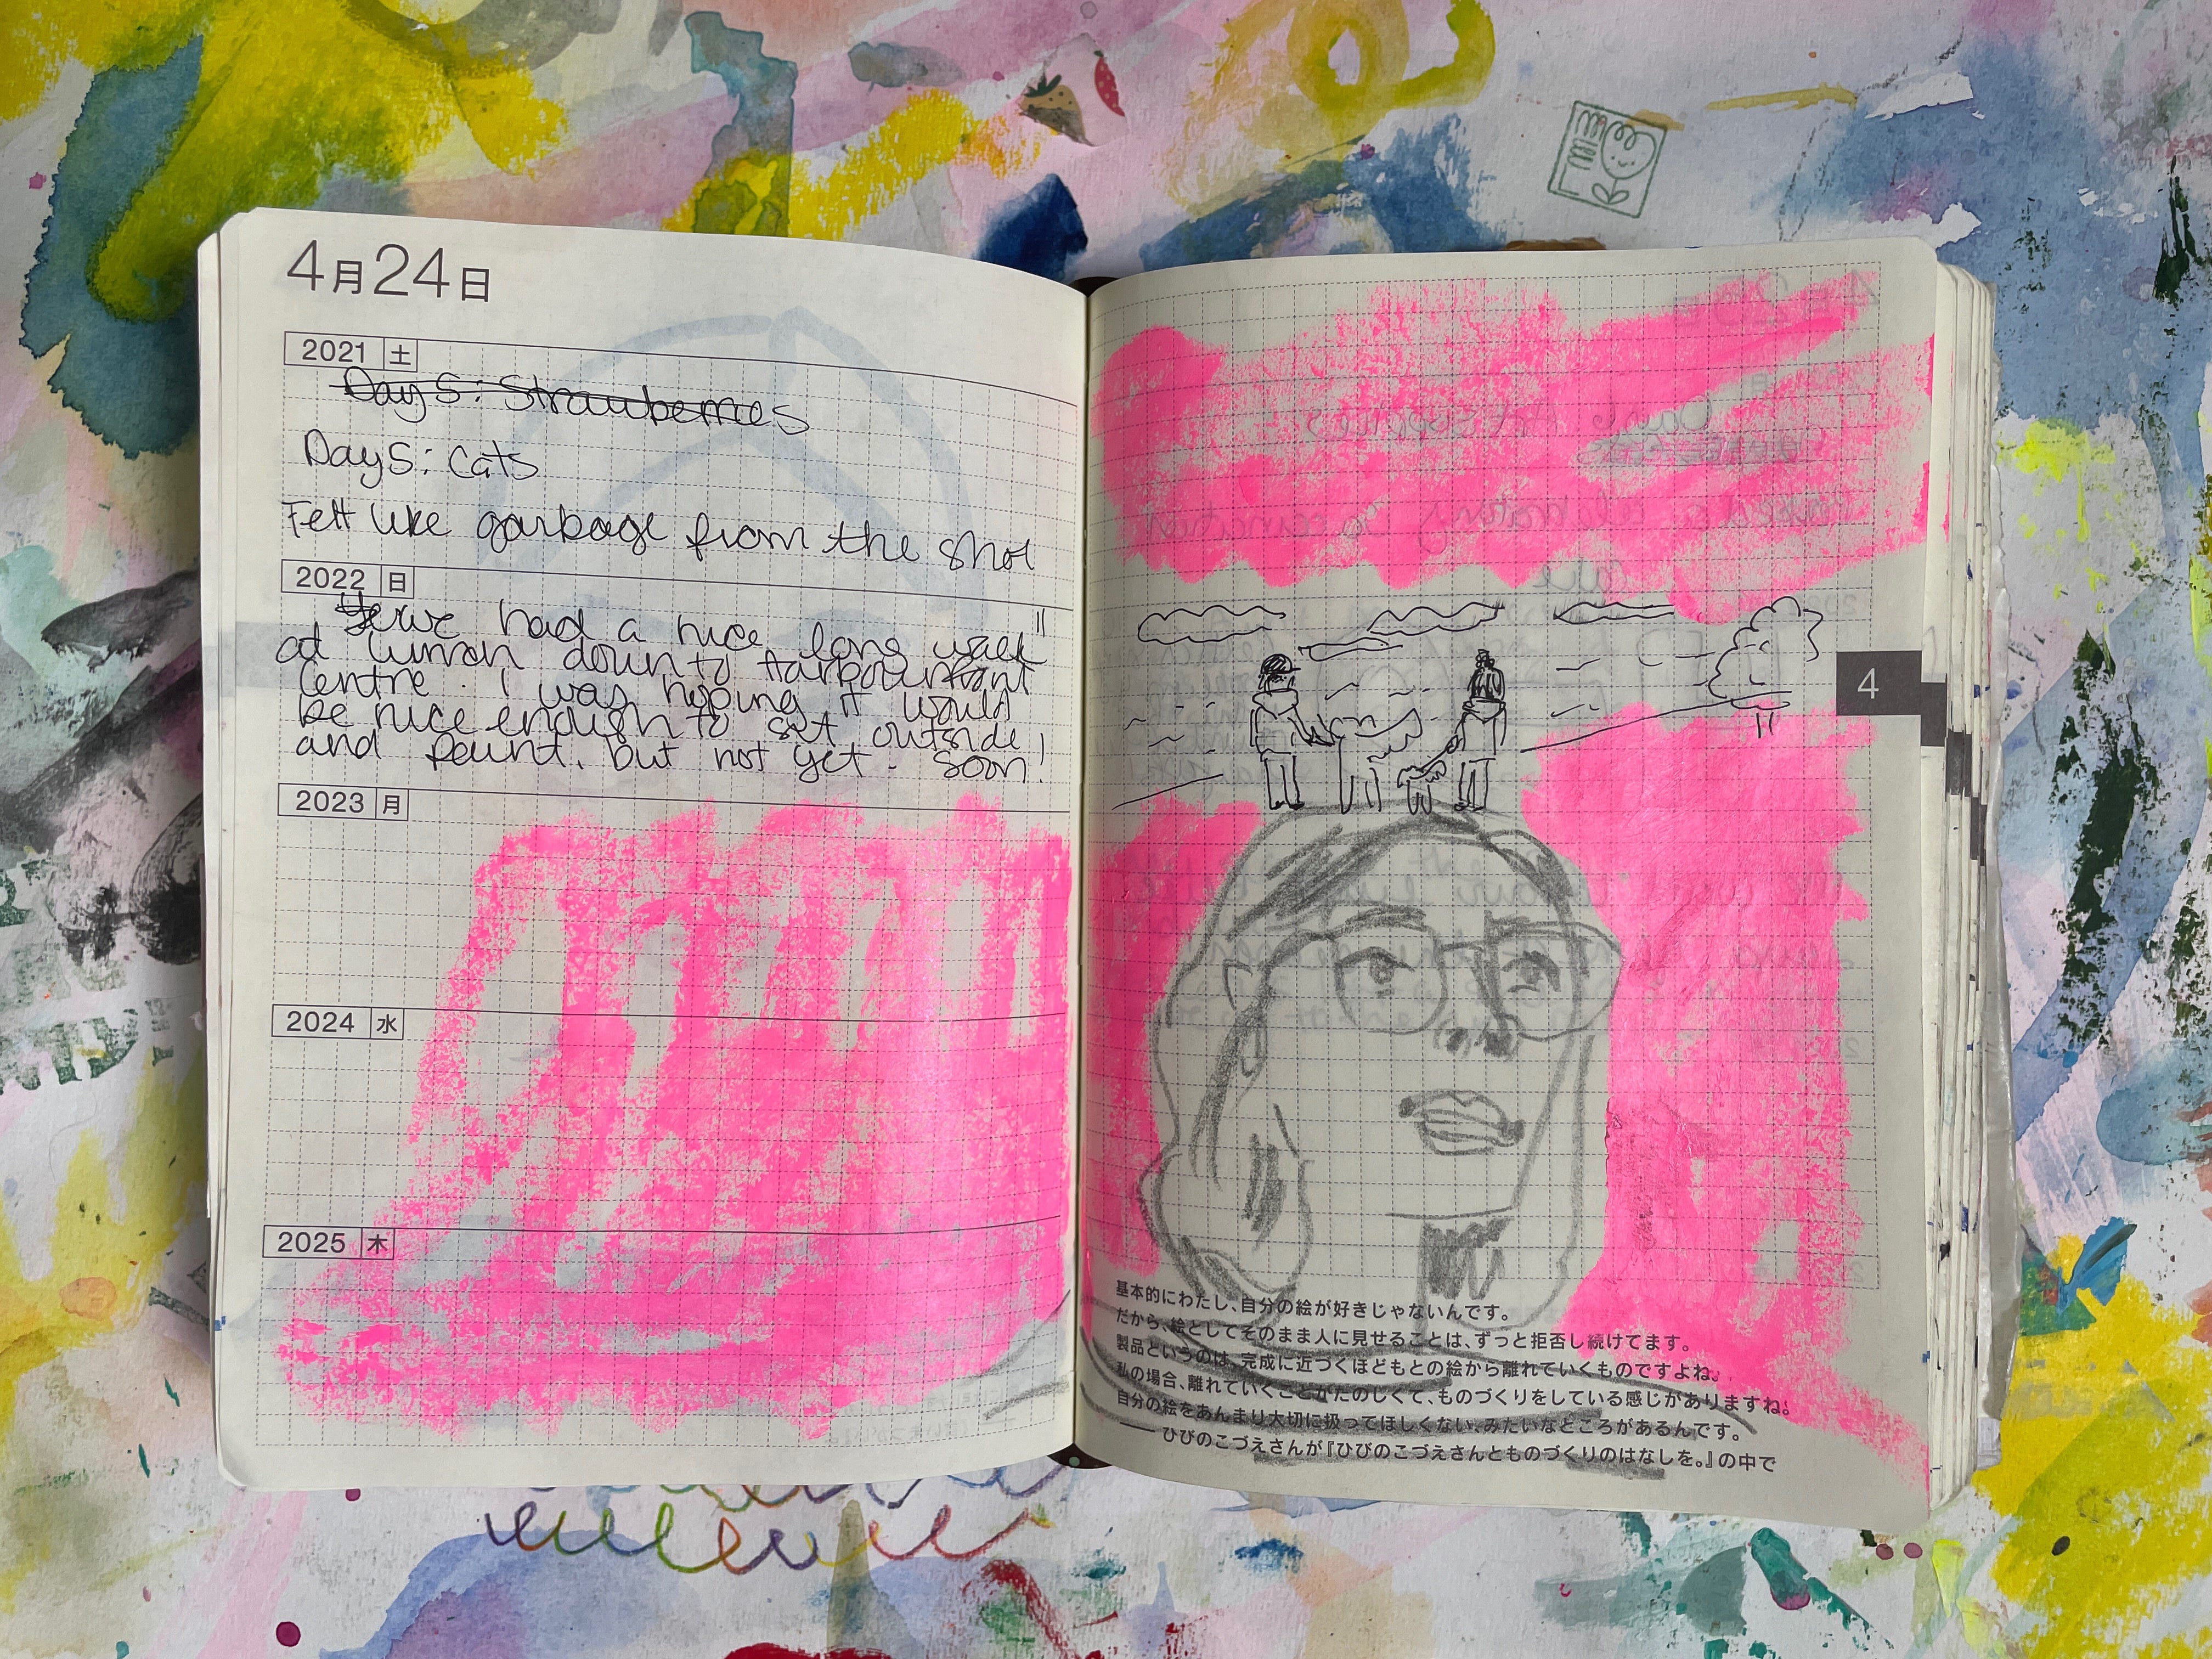 4月24日
2021 土
Day 5: Strawberries
Day 5: Cats
Felt like garbage from the shot
2022 日
we had a nice long walk
at lunch down to Harbourfront
Centre. I was hoping it would
be nice enough to sit outside
and paint, but not yet. Soon!
2023 月
2024 水
2025 木
4
基本的にわたし、自分の絵が好きじゃないんです。
だから、絵としてそのまま人に見せることは、ずっと拒否し続けてます。
製品というのは、完成に近づくほどもとの絵から離れていくものですよね。
私の場合、離れていくことがたのしくて、ものづくりをしている感じがありますね。
自分の絵をあんまり大切に扱ってほしくない、みたいなところがあるんです。
──ひびのこづえさんが『ひびのこづえさんとものづくりのはなしを。』の中で